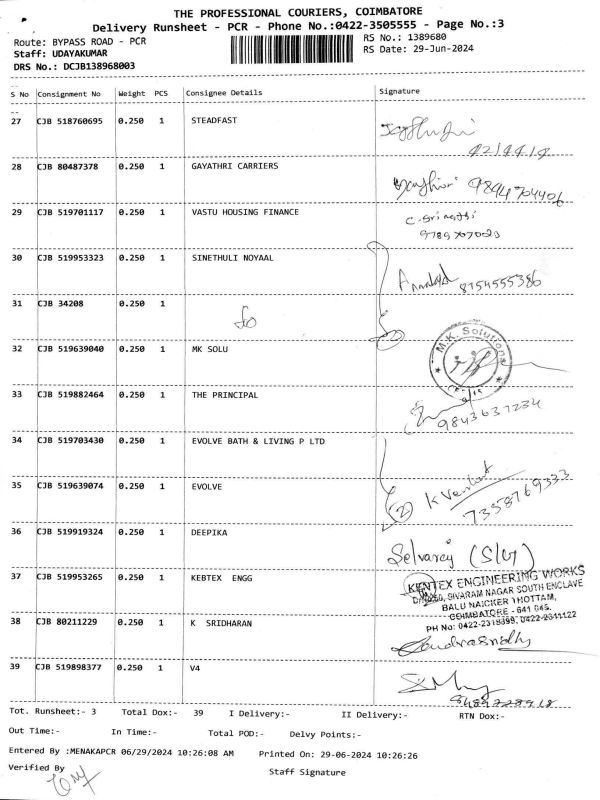 THE PROFESSIONAL COURIERS, COIMBATORE
Delivery Runsheet - PCR - Phone No.:0422-3505555 - Page No.:3
Route: BYPASS ROAD - PCR
RS No.: 1389680
Staff: UDAYAKUMAR
RS Date: 29-Jun-2024
DRS No.: DCJB138968003
S No Consignment No Weight PCS Consignee Details Signature
27 CJB 518760695 0.250 1 STEADFAST
28 CJB 80487378 0.250 1 GAYATHRI CARRIERS
9894704406
29 CJB 519701117 0.250 1 VASTU HOUSING FINANCE
30 CJB 519953323 0.250 1 SINETHULI NOYAAL
8754555386
31 CJB 34208 0.250 1
2
32 CJB 519639040 0.250 1 MK SOLU
M.K. Solutions
33 CJB 519882464 0.250 1 THE PRINCIPAL
9843637234
34 CJB 519703430 0.250 1 EVOLVE BATH & LIVING P LTD
35 CJB 519639074 0.250 1 EVOLVE
2 K Venkat
7358769333
36 CJB 519919324 0.250 1 DEEPIKA
37 CJB 519953265 0.250 1 KEBTEX ENGG
KENTEX ENGINEERING WORKS
SIVARAM NAGAR SOUTH ENCLAVE
BALU NAICKER THOTTAM,
COIMBATORE - 641 045.
38 CJB 80211229 0.250 1 K SRIDHARAN
PH No: 0422-2318399, 0422-2311122
39 CJB 519898377 0.250 1 V4
Tot. Runsheet:- 3 Total Dox:- 39 I Delivery:- II Delivery:- RTN Dox:-
Out Time:- In Time:- Total POD:- Delvy Points:-
Entered By :MENAKAPCR 06/29/2024 10:26:08 AM Printed On: 29-06-2024 10:26:26
Verified By
Staff Signature